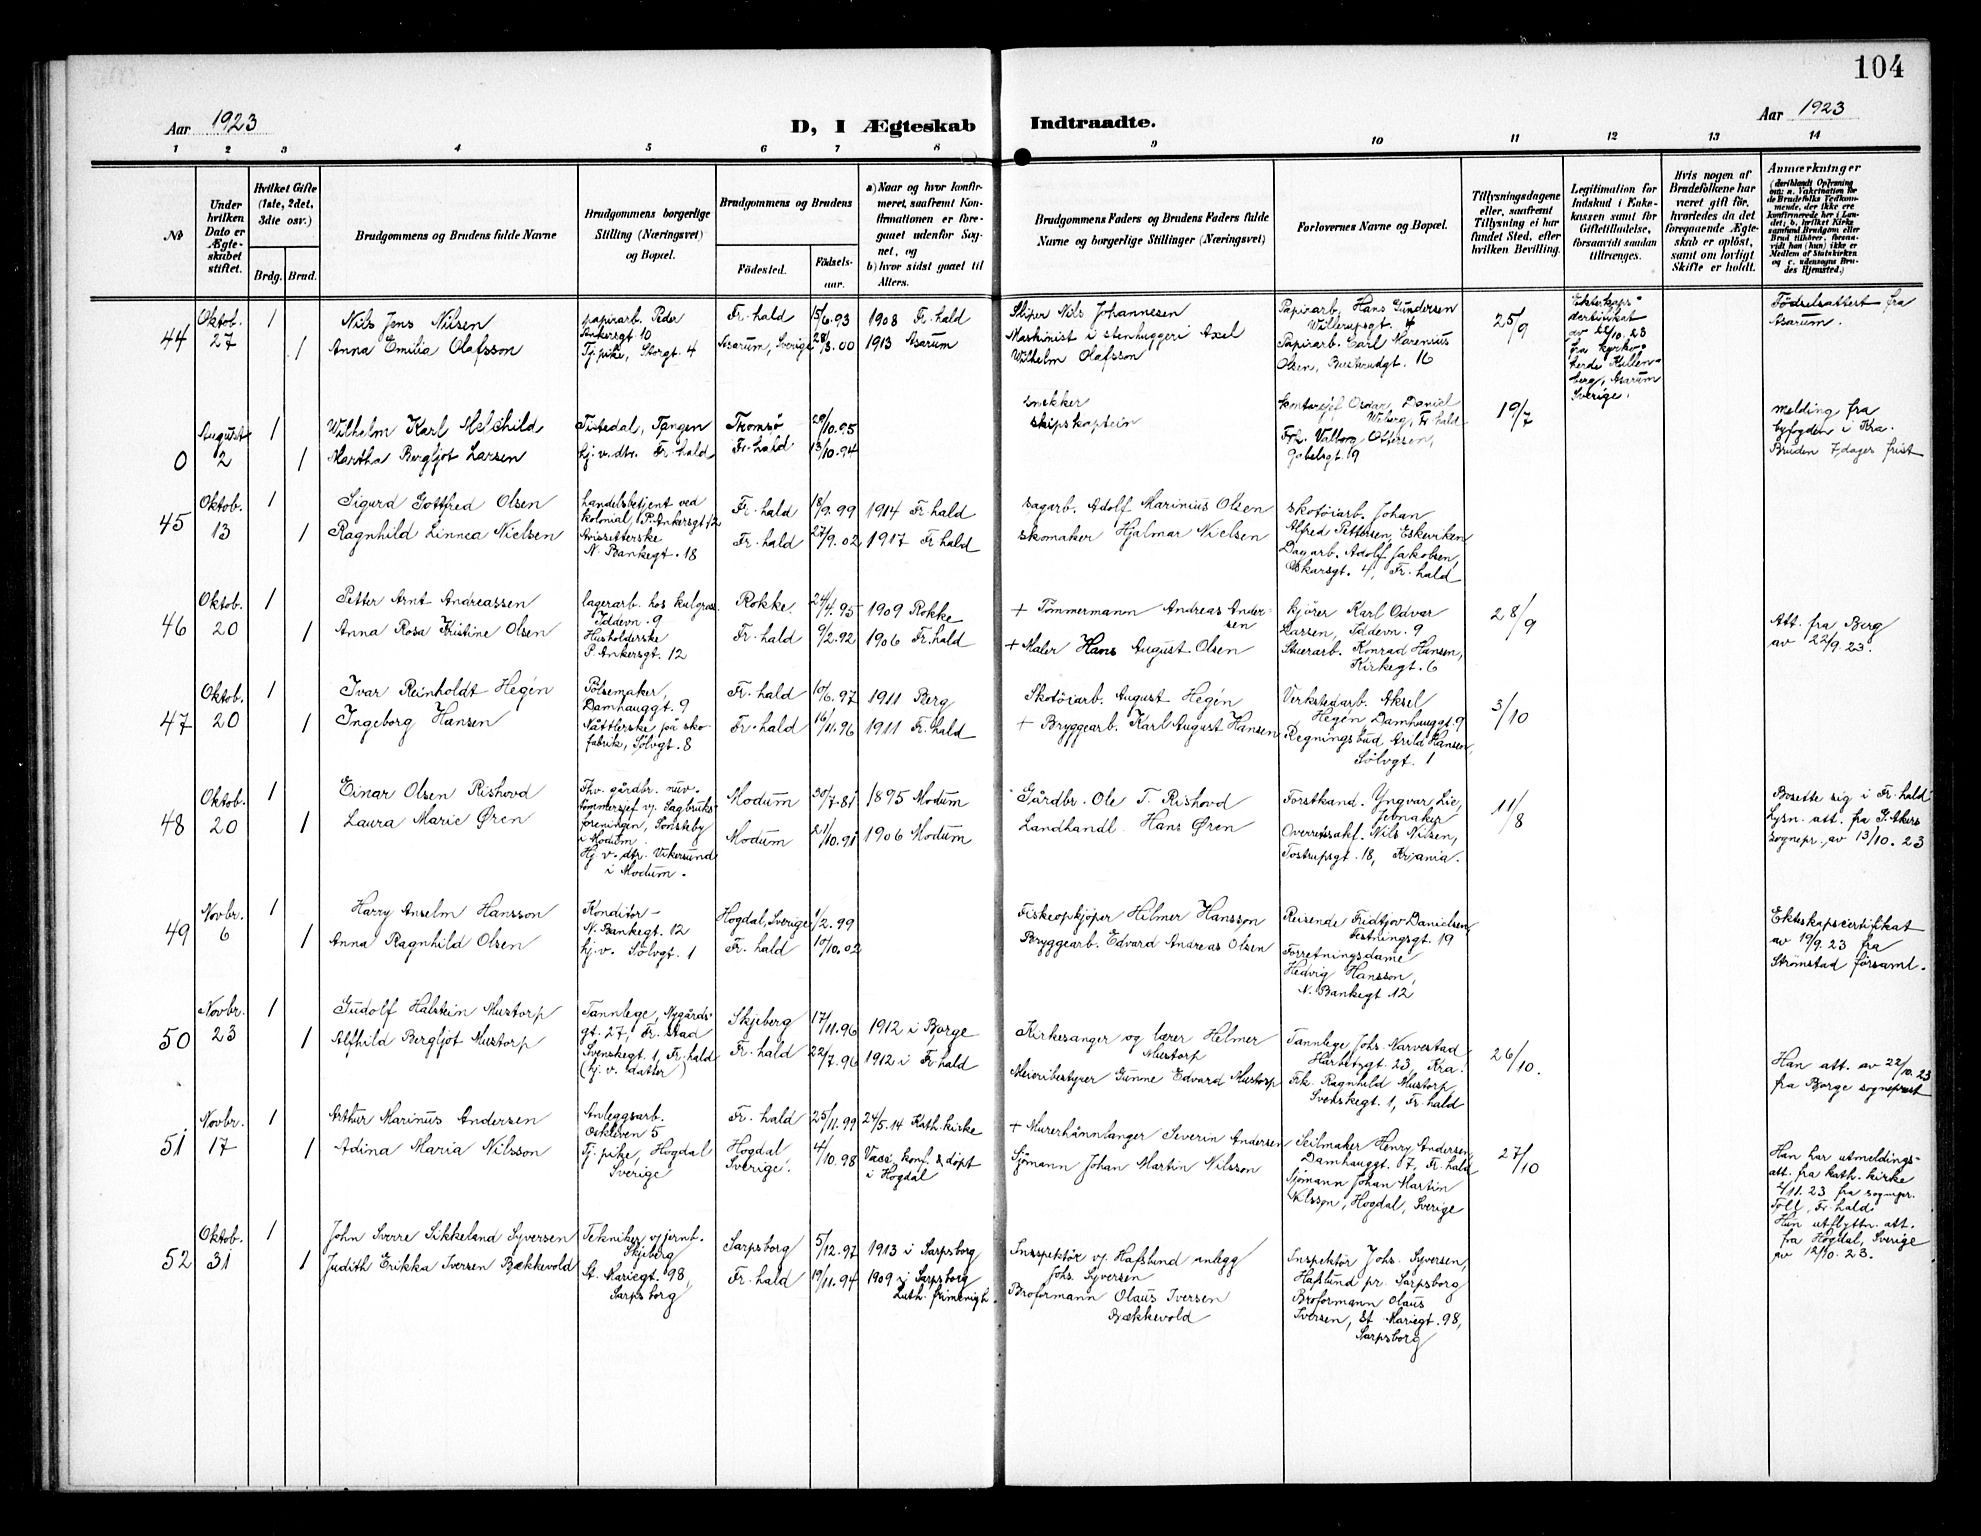 104
Aar 1923
D, I Ægteskab Indtraadte.
Aar 1923
1 2 3 4 5 6 7 8 9 10 11 12 13 14
№
Under hvilken Dato er Ægteskabet stiftet.
Hvilket Gifte (1ste, 2det, 3die osv.)
Brdg. Brud.
Brudgommens og Brudens fulde Navne
Brudgommens borgerlige Stilling (Næringsvei) og Bopæl.
Brudgommens og Brudens
Fødested. Fødselsaar.
a) Naar og hvor konfirmeret, saafremt Konfirmationen er foregaaet udenfor Sognet, og
b) hvor sidst gaaet til Alters.
Brudgommens Faders og Brudens Faders fulde Navne og borgerlige Stillinger (Næringsvei)
Forlovernes Navne og Bopæl.
Tillysningsdagene eller, saafremt Tillysning ei har fundet Sted, efter hvilken Bevilling.
Legitimation for Indskud i Enkekassen samt for Giftetilladelse, forsaavidt saadan tiltrænges.
Hvis nogen af Brudefolkene har været gift før, hvorledes da det foregaaende Ægteskab er opløst, samt om lovligt Skifte er holdt.
Anmærkninger
44 Oktob. 27 1 Nils Jens Nilsen papirarb. Peder Ankersgt 10 Fr.hald 15/6.93 1908 Fr.hald
1 Anna Emilia Olafsson Tj.pike, Storgt. 4 Asarum, Sverige 28/3.00 1913 Asarum
Skiper Nils Johannesen
Maskinist i stenhuggeri Axel
Wilhelm Olafsson
Papirarb. Hans Gundersen
Papirarb. Carl Marenius
Olsen, Busterudgt. 16
25/9
av 22/10.23
Asarum
Sverige.
Fødselsattest fra
Asarum.
0 August 2 1 Wilhelm Karl Melchild Tistedal, Tangen Tromsø 29/10.95
1 Martha Bergljot Larsen hj.v.dtr. Fr.hald Fr.hald 13/10.94
snekker
skipskaptein
Kontorsjef Oscar Daniel
Wiberg, Fr.hald
Frk. Valborg Ottersen,
Gabelsgt. 9
19/7
melding fra
byfogden i Kra.
Bruden 7 dager frist
45 Oktob. 13 1 Sigurd Gottfred Olsen handelsbetjent ved kolonial, P. Ankersgt 12 Fr.hald 18/9.99 1914 Fr.hald
1 Ragnhild Linnea Nielsen Avissetterske N. Bankegt. 18 Fr.hald 27/9.02 1917 Fr.hald
sagarb. Adolf Marinius Olsen
skomaker Hjalmar Nielsen
skotøiarb. Johan
Alfred Pettersen, Eskeviken
Dagarb. Adolf Jakobsen,
Oskarsgt. 4, Fr.hald
46 Oktob. 20 1 Petter Arnt Andreassen lagerarb. hos kulgros. Iddevn. 9 Rokke 24/4.95 1909 Rokke
1 Anna Rosa Kristine Olsen Husholderske P. Ankersgt. 12 Fr.hald 9/2.92 1906 Fr.hald
+ Tømmermann Andreas Andersen
+ Maler Hans August Olsen
kjører Karl Odvar
Larsen, Iddevn. 9
Stuerarb. Konrad Hansen,
Kirkegt. 6
28/9
Att. fra Berg
av 22/9.23.
47 Oktob. 20 1 Ivar Reinholdt Hegén Pølsemaker, Damhauggt. 9 Fr.hald 10/6.97 1911 Berg
1 Ingeborg Hansen Nåtlerske på skofabrik, Sølvgt. 8 Fr.hald 16/11.96 1911 Fr.hald
Skotøiarb. August Hegén
+ Bryggearb. Karl August Hansen
Verkstedarb. Aksel
Hegén Damhauggt. 9
Regningsbud Arild Hansen,
Sølvgt. 1
3/10
48 Oktob. 20 1 Einar Olsen Rishovd Fhv. gårdbr. nuv. tømmersjef v. Sagbruksforeningen, Sonsteby i Modum. Modum 30/7.81 1895 Modum
1 Laura Marie Øren Hj. v. dtr. Vikersund i Modum. Modum 21/10.91 1906 Modum
Gårdbr. Ole T. Rishovd
Landhandl. Hans Øren
Forstkand. Yngvar Lie,
Jevnaker
Overretssakf. Nils Nilsen,
Tostrupsgt. 18, Kr.ania.
11/8
Bosette sig i Fr.hald
Lysn. att. fra
sognepr. av 13/10.23
49 Novbr. 6 1 Harry Anselm Hansson Konditor N. Bankegt. 12 Hogdal, Sverige 1/2.99
1 Anna Ragnhild Olsen hj.v. Sølvgt. 1 Fr.hald 10/10.02
Fiskeopkjøper Hilmer Hansson
Bryggearb. Edvard Andreas Olsen
Reisende Fridtjov Danielsen
Festningsgt. 19
Forretningsdame
Hedvig Hansson,
N. Bankegt 12
Ekteskapscertifikat
av 19/9.23 fra
Strømstad församl.
50 Novbr. 23 1 Gudolf Halstein Mustorp Tannlege, Nygårdsgt. 27, Fr.stad Skjeberg 17/11.96 1912 i Borge
1 Alfhild Bergljot Mustorp Svenskegt. 1, Fr.hald (hj.v. datter) Fr.hald 22/7.96 1912 i Fr.hald
Kirkesanger og lærer Helmer
Mustorp
Meieribestyrer Gunne Edvard Mustorp
Tannlege Johs. Narvestad
Harbitzgt. 23, Kra.
Frk. Ragnhild Mustorp
Svenskegt. 1, Fr.hald
26/10.
Han att. av 22/10.23
fra Borge sogneprest
51 Novbr. 17 1 Arthur Marinus Andersen Anleggsarb. Oskleven 5 Fr.hald 25/11.99 24/5.14 Kath. kirke
1 Adina Maria Nilsson Tj.pike, Hogdal Sverige Hogdal, Sverige. 4/10.98 Vacc., konf. & døpt i Hogdal
+ Murerhånnlanger Severin Andersen
Sjømann Johan Martin Nilsson
Seilmaker Henry Andersen,
Damhauggt. 17, Fr.hald
Sjømann Johan Martin
Nilsson, Hogdal, Sverige
27/10
Han har utmeldings-
att. fra kath. kirke
2/11.23 fra sognepr.
Fr.hald.
Hun utflyttn. att.
fra Hogdal, Sverige
av 12/10.23.
52 Oktob. 31 1 John Sverre Sikkeland Syversen Tekniker v. jernb. Skjeberg Sarpsborg 5/12.97 1913 i Sarpsborg
1 Judith Erikka Iversen Bækkevold St. Mariegt. 98, Sarpsborg Fr.hald 19/11.94 1909 i Sarpsborg Luth. frimenigh.
Inspektør v. Hafslund anlegg
Johs. Syversen
Broformann Olaus Iversen
Bækkevold
Inspektør Johs. Syversen,
Hafslund pr. Sarpsborg
Broformann Olaus
Iversen, St. Mariegt. 98,
Sarpsborg